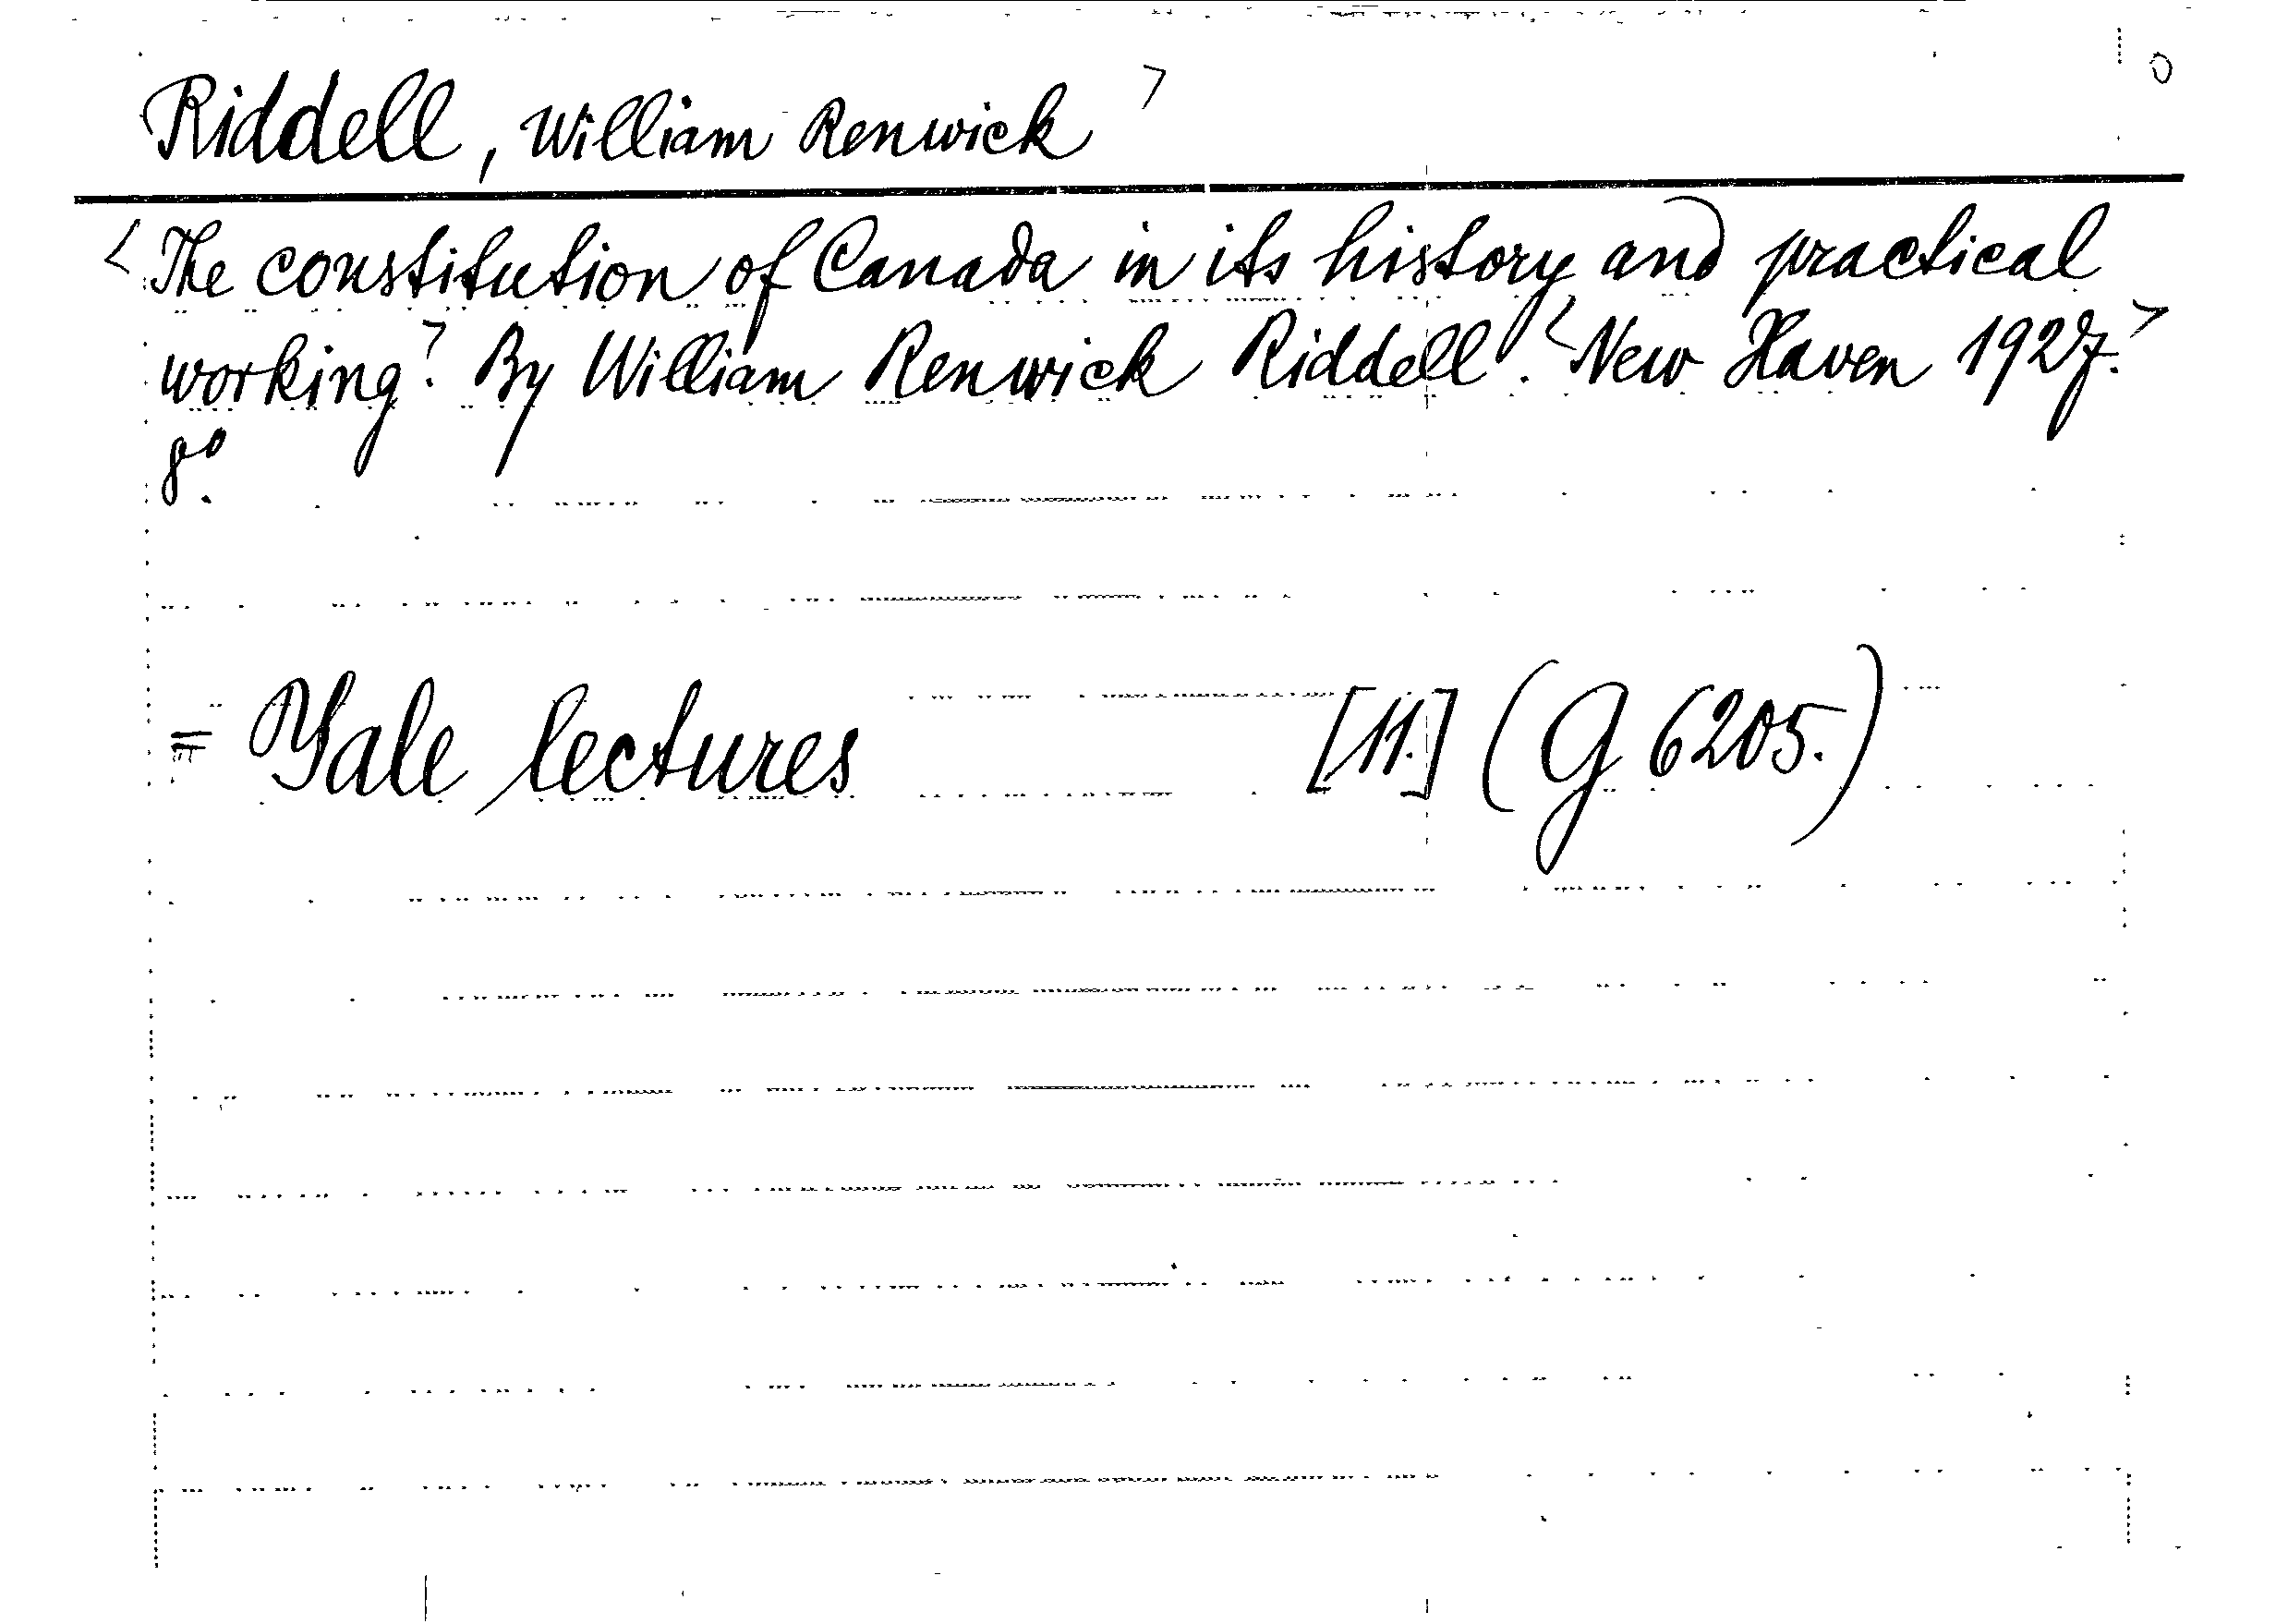 Riddell, William Renwick >
< The constitution of Canada in its history and practical
working.> By William Renwick Riddell. < New Haven 1927.>
8°.
= Yale lectures [11.] (G 6205.)